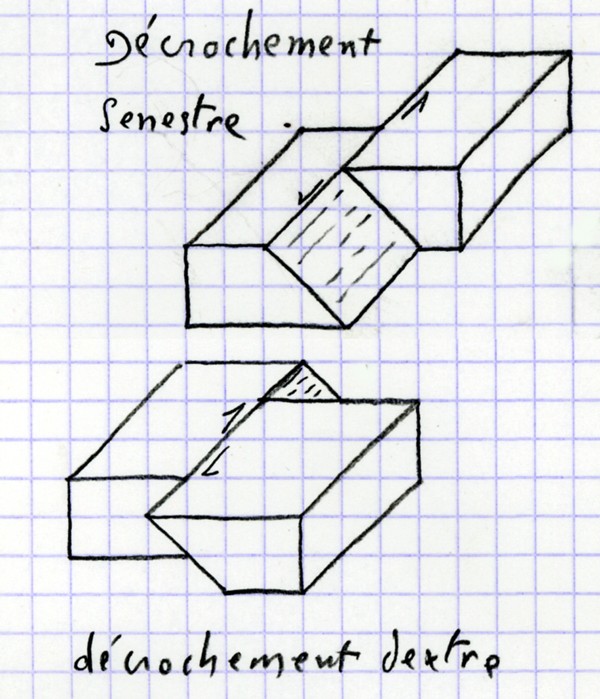 Décrochement
Senestre
décrochement dextre